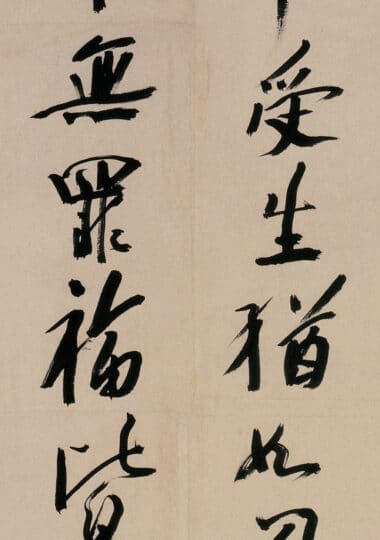 受生猶如
無罪福皆